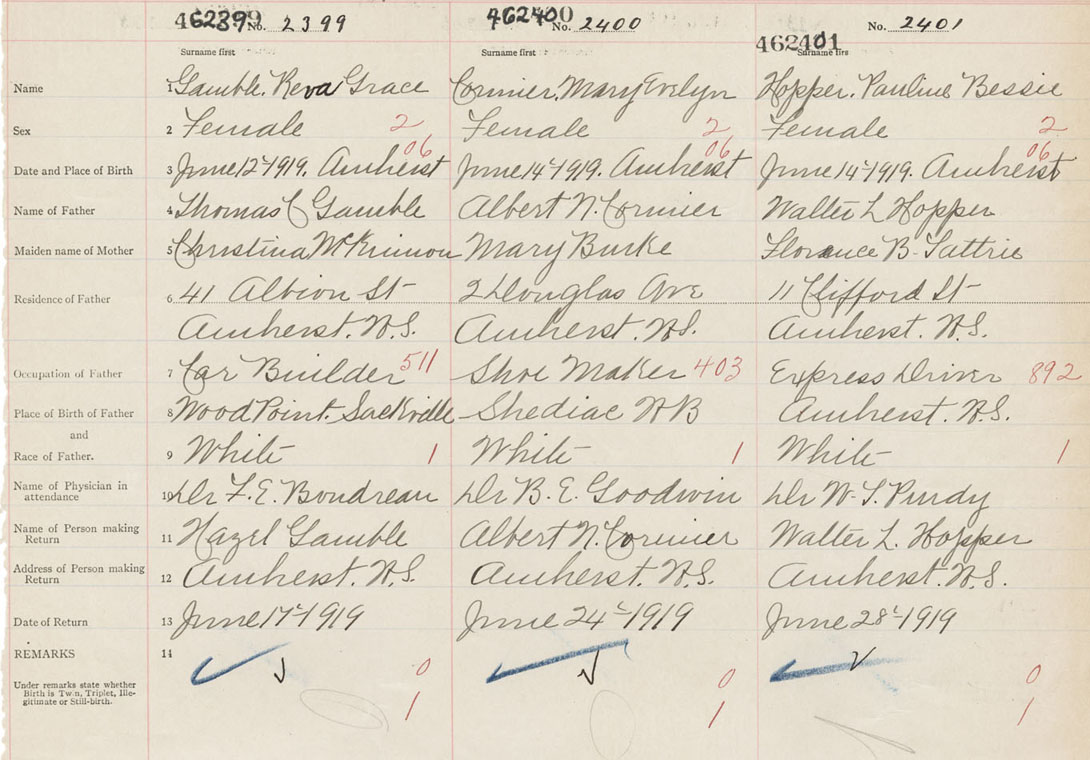 462399 No. 2399 462400 No. 2400 462401 No. 2401
Surname first Surname first Surname firs
Name 1 Gamble. Reva Grace Cormier, Mary Evelyn Hopper. Pauline Bessie
Sex 2 Female 2 Female 2 Female 2
06 06 06
Date and Place of Birth 3 June 12th 1919, Amherst June 14th 1919. Amherst June 14th 1919. Amherst
Name of Father 4 Thomas C Gamble Albert N. Cormier Walter L Hopper
Maiden name of Mother 5 Christina McKinnon Mary Burke Florence B. Tattrie
Residence of Father 6 41 Albion St 2 Douglas Ave 11 Clifford St
Amherst. N.S. Amherst. N.S. Amherst. N.S.
Occupation of Father 7 Car Builder 511 Shoe Maker 403 Express Driver 892
Place of Birth of Father 8 Wood Point. Sackville Shediac NB Amherst. N.S.
and
Race of Father. 9 White 1 White 1 White 1
Name of Physician in
attendance 10 Dr F. E. Boudreau Dr B. E. Goodwin Dr W. T. Purdy
Name of Person making
Return 11 Hazel Gamble Albert N. Cormier Walter L. Hopper
Address of Person making
Return 12 Amherst. N.S. Amherst. N.S. Amherst. N.S.
Date of Return 13 June 17th 1919 June 24th 1919 June 28th 1919
REMARKS 14
Under remarks state whether
Birth is Twin, Triplet, Ille-
gitimate or Still-birth.
0 0 0
1 1 1